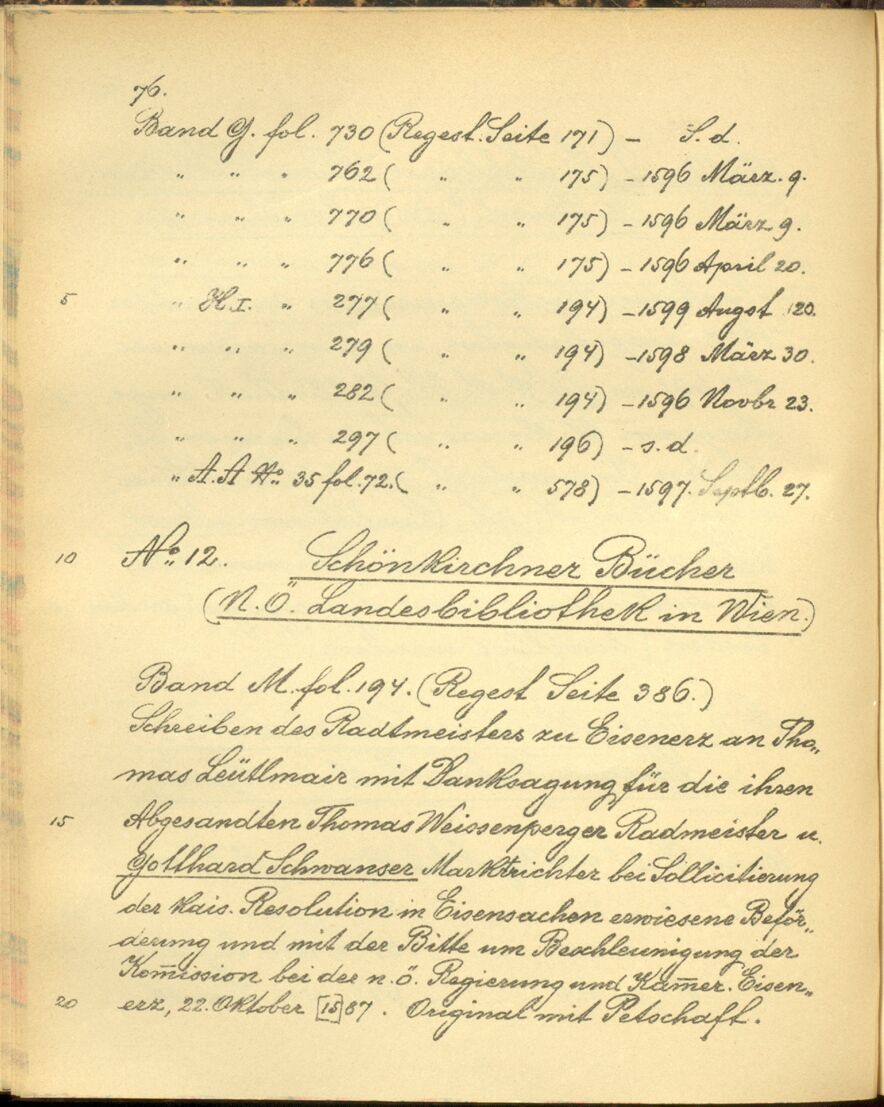 76.
Band G. fol. 730 (Regest. Seite 171) – S. d.
" " " 762 ( " " 175) – 1596 März. 9.
" " " 770 ( " " 175) – 1596 März 9.
" " " 776 ( " " 175) – 1596 April 20.
5 " H.I. " 277 ( " " 194) – 1599 Augst 20.
" " " 279 ( " " 194) – 1598 März 30.
" " " 282 ( " " 194) – 1596 Novbr 23.
" " " 297 ( " " 196) – s. d.
" A. A No: 35 fol. 72. ( " " 578) – 1597. Septb. 27.
10 No: 12. Schönkirchner Bücher
(N. Ö. Landesbibliothek in Wien.)
Band M. fol. 194. (Regest Seite 386.)
Schreiben des Radtmeisters zu Eisenerz an Tho„
mas Leütlmair mit Danksagung für die ihren
15 Abgesandten Thomas Weissenperger Radmeister u.
Gotthard Schwanser Marktrichter bei Sollicitierung
der kais. Resolution in Eisensachen erwiesene Beför„
derung und mit der Bitte um Beschleunigung der
Kom̄ission bei der n. ö. Regierung und Kam̄er. Eisen„
20 erz, 22. Oktober [15]87. Original mit Petschaft.